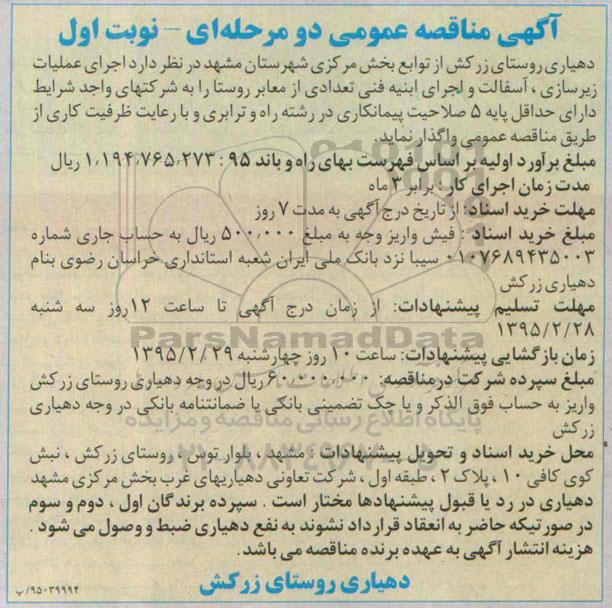 آگهی مناقصه عمومی دو مرحله‌ای - نوبت اول
دهیاری روستای زرکش از توابع بخش مرکزی شهرستان مشهد در نظر دارد اجرای عملیات
زیرسازی ، آسفالت و اجرای ابنیه فنی تعدادی از معابر روستا را به شرکتهای واجد شرایط
دارای حداقل پایه ۵ صلاحیت پیمانکاری در رشته راه و ترابری و با رعایت ظرفیت کاری از
طریق مناقصه عمومی واگذار نماید.
مبلغ برآورد اولیه بر اساس فهرست بهای راه و باند ۹۵ : ۱،۱۹۴،۷۶۵،۲۷۳ ریال
مدت زمان اجرای کار : برابر ۳ ماه
مهلت خرید اسناد : از تاریخ درج آگهی به مدت ۷ روز
مبلغ خرید اسناد : فیش واریز وجه به مبلغ ۵۰۰،۰۰۰ ریال به حساب جاری شماره
۰۱۰۷۶۸۹۴۳۵۰۰۳ سیبا نزد بانک ملی ایران شعبه استانداری خراسان رضوی بنام
دهیاری زرکش
مهلت تسلیم پیشنهادات: از زمان درج آگهی تا ساعت ۱۲ روز سه شنبه
۱۳۹۵/۲/۲۸
زمان بازگشایی پیشنهادات: ساعت ۱۰ روز چهارشنبه ۱۳۹۵/۲/۲۹
مبلغ سپرده شرکت در مناقصه: ۶۰،۰۰۰،۰۰۰ ریال در وجه دهیاری روستای زرکش
واریز به حساب فوق الذکر و یا چک تضمینی بانکی یا ضمانتنامه بانکی در وجه دهیاری
زرکش
محل خرید اسناد و تحویل پیشنهادات : مشهد ، بلوار توس ، روستای زرکش ، نبش
کوی کافی ۱۰ ، پلاک ۲ ، طبقه اول ، شرکت تعاونی دهیاریهای غرب بخش مرکزی مشهد
دهیاری در رد یا قبول پیشنهادها مختار است . سپرده برندگان اول ، دوم و سوم
در صورتیکه حاضر به انعقاد قرارداد نشوند به نفع دهیاری ضبط و وصول می شود .
هزینه انتشار آگهی به عهده برنده مناقصه می باشد.
دهیاری روستای زرکش
۹۵۰۳۹۹۹۴/پ
ParsNamadData
پایگاه اطلاع رسانی مناقصه و مزایده